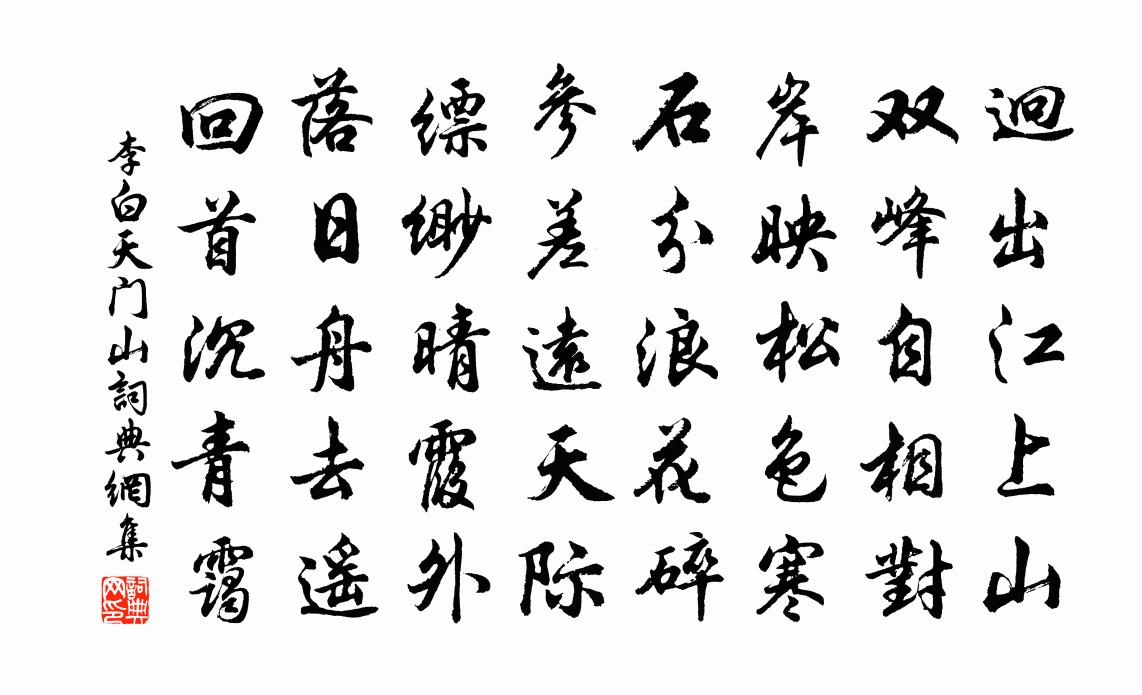 迥出江上山
双峰自相對
岸映松色寒
石分浪花碎
參差遠天际
缥缈晴霞外
落日舟去遥
回首沉青靄
李白天门山詞典網集
詞典网印